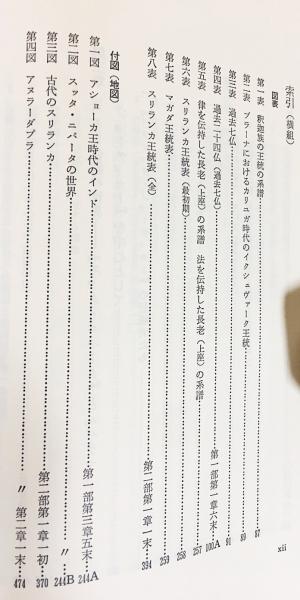 索引（横組）
図表
第一表　釈迦族の王統の系譜……87
第二表　プラーナにおけるカリユガ時代のイクシュヴァーク王統……89
第三表　過去七仏……91
第四表　過去二十四仏（過去七仏）……第一部第一章六末……100A
第五表　律を伝持した長老（上座）の系譜　法を伝持した長老（上座）の系譜……257
第六表　スリランカ王統表（最初期）……258
第七表　マガダ王統表……259
第八表　スリランカ王統表（全）……第二部第一章一末……394
付図（地図）
第一図　アショーカ王時代のインド……第一部第三章五末……244A
第二図　スッタ・ニパータの世界……〃……244B
第三図　古代のスリランカ……第二部第一章一初……370
第四図　アヌラーダプラ……〃　第二章一末……474
xii